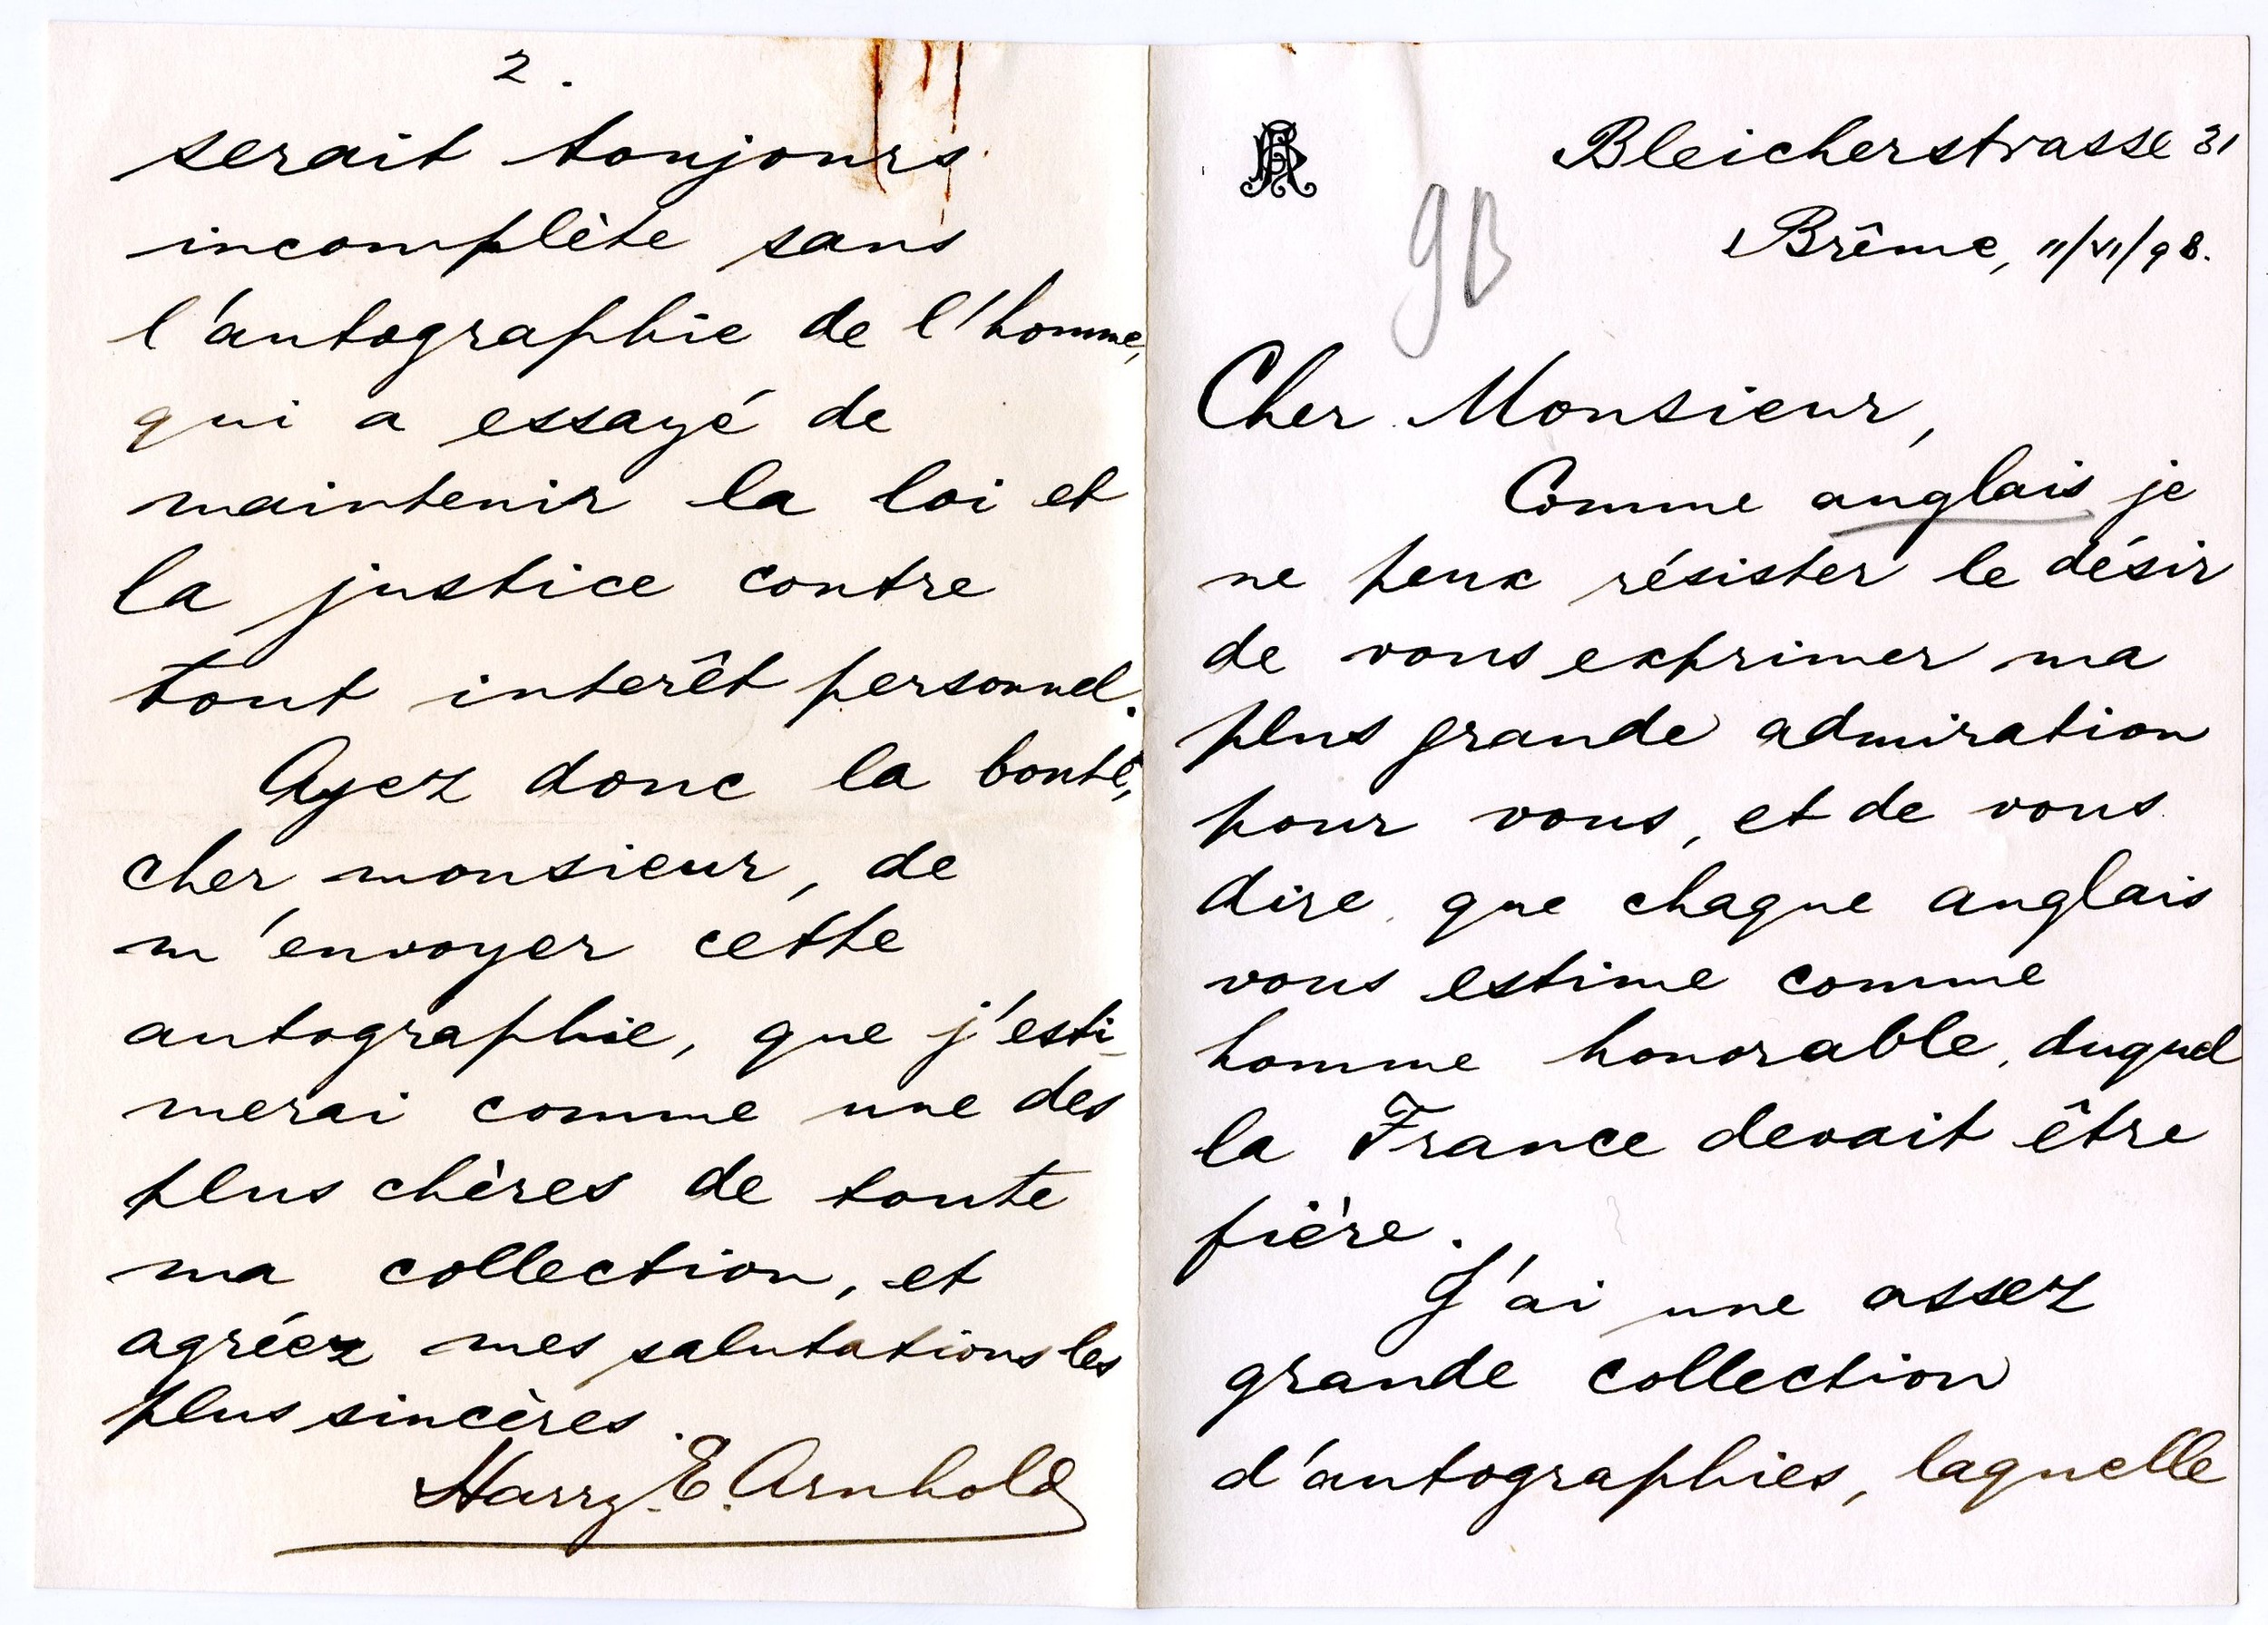 Bleicherstrasse 31
Brême, 11/VI/98.
9B
Cher Monsieur,
Comme anglais je
ne peux résister le désir
de vous exprimer ma
plus grande admiration
pour vous, et de vous
dire que chaque anglais
vous estime comme
homme honorable, duquel
la France devait être
fière.
J'ai une assez
grande collection
d'autographies, laquelle
2.
serait toujours
incomplète sans
l'autographie de l'homme,
qui a essayé de
maintenir la loi et
la justice contre
tout interêt personnel.
Ayez donc la bonté,
cher monsieur, de
m'envoyer cette
autographie, que j'esti-
merai comme une des
plus chères de toute
ma collection, et
agréez mes salutations les
plus sincères.
Harry E. Arnhold